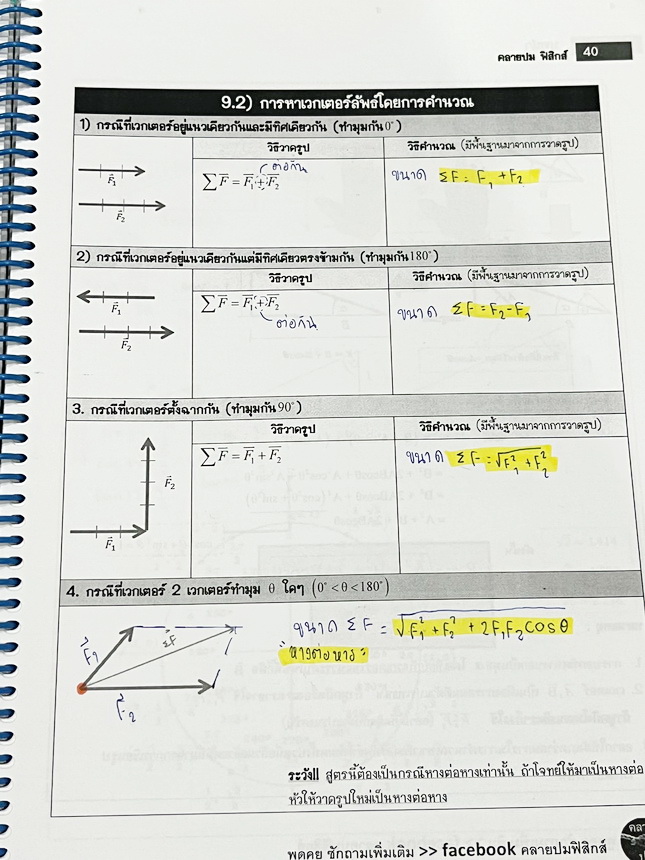 คลายปม ฟิสิกส์ 40
9.2) การหาเวกเตอร์ลัพธ์โดยการคำนวณ
1) กรณีที่เวกเตอร์อยู่แนวเดียวกันและมีทิศเดียวกัน (ทำมุมกัน 0°)
วิธีวาดรูป
วิธีคำนวณ (มีพื้นฐานมาจากการวาดรูป)
F₁
F₂
ต่อกัน
∑F = F₁ + F₂
ขนาด ΣF = F₁ + F₂
2) กรณีที่เวกเตอร์อยู่แนวเดียวกันแต่มีทิศเดียวตรงข้ามกัน (ทำมุมกัน 180°)
วิธีวาดรูป
วิธีคำนวณ (มีพื้นฐานมาจากการวาดรูป)
F₁
F₂
∑F = F₁ + F₂
ต่อกัน
ขนาด ΣF = F₂ - F₁
3. กรณีที่เวกเตอร์ตั้งฉากกัน (ทำมุมกัน 90°)
วิธีวาดรูป
วิธีคำนวณ (มีพื้นฐานมาจากการวาดรูป)
F₂
F₁
∑F = F₁ + F₂
ขนาด ΣF = √F₁² + F₂²
4. กรณีที่เวกเตอร์ 2 เวกเตอร์ทำมุม θ ใดๆ (0° < θ < 180°)
F₁
ΣF
F₂
ขนาด ΣF = √F₁² + F₂² + 2F₁F₂cosθ
หางต่อหาง
ระวัง!! สูตรนี้ต้องเป็นกรณีหางต่อหางเท่านั้น ถ้าโจทย์ให้มาเป็นหางต่อ
หัวให้วาดรูปใหม่เป็นหางต่อหาง
พูดคุย ซักถามเพิ่มเติม >> facebook คลายปมฟิสิกส์